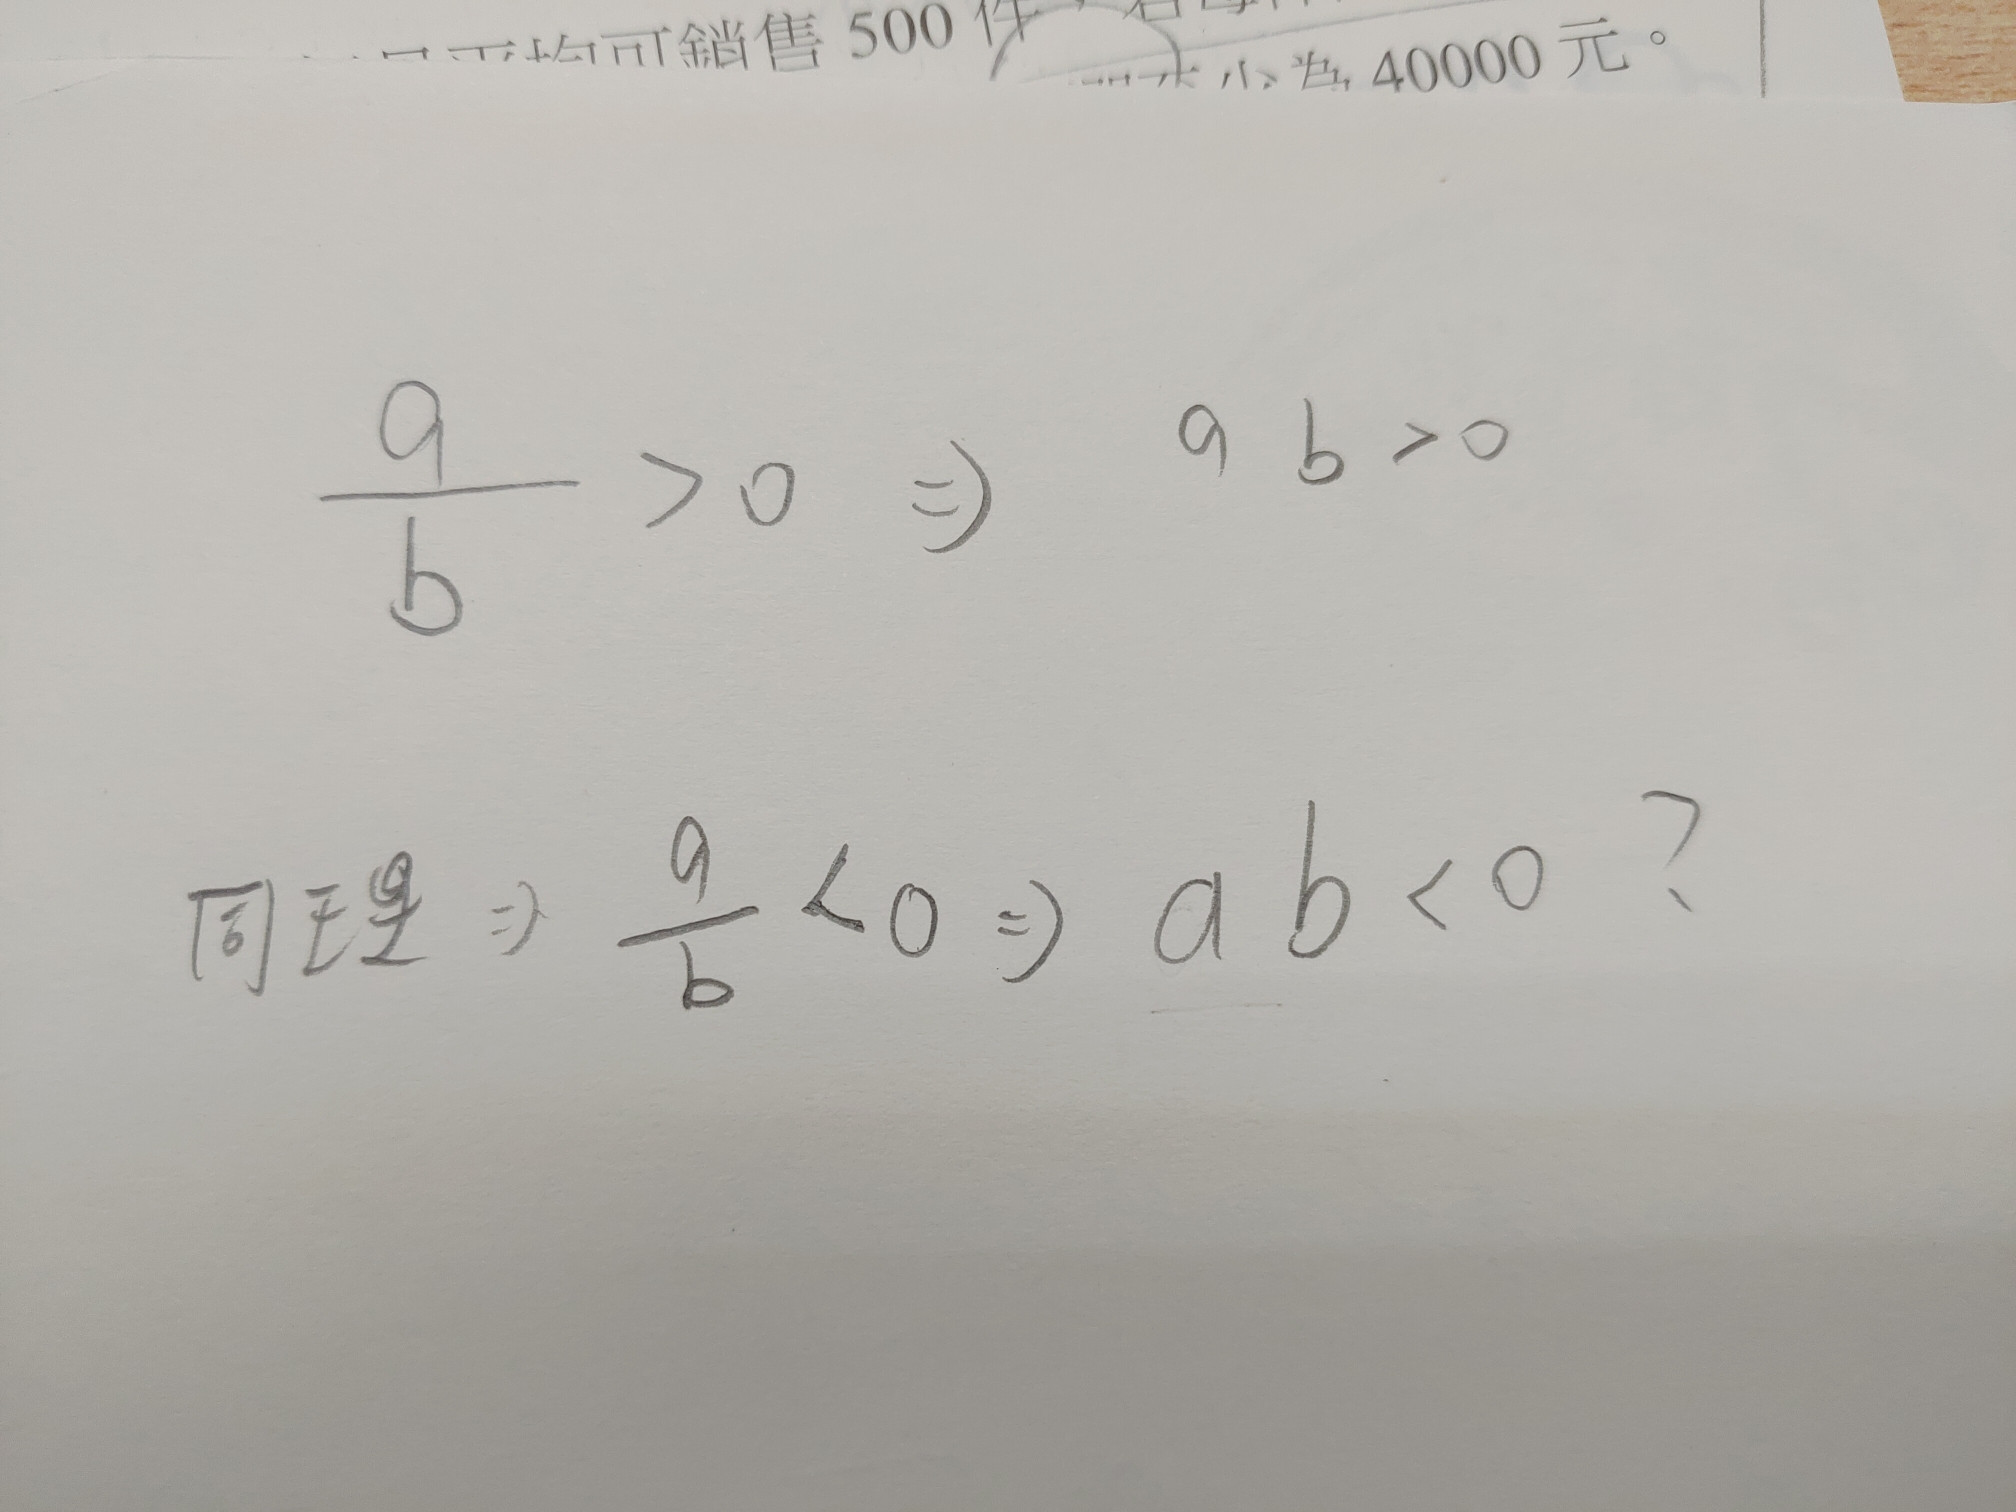 可銷售 500 件
40000 元。
a/b > 0 ⇒ a b > 0
同理 ⇒ a/b < 0 ⇒ a b < 0 ?